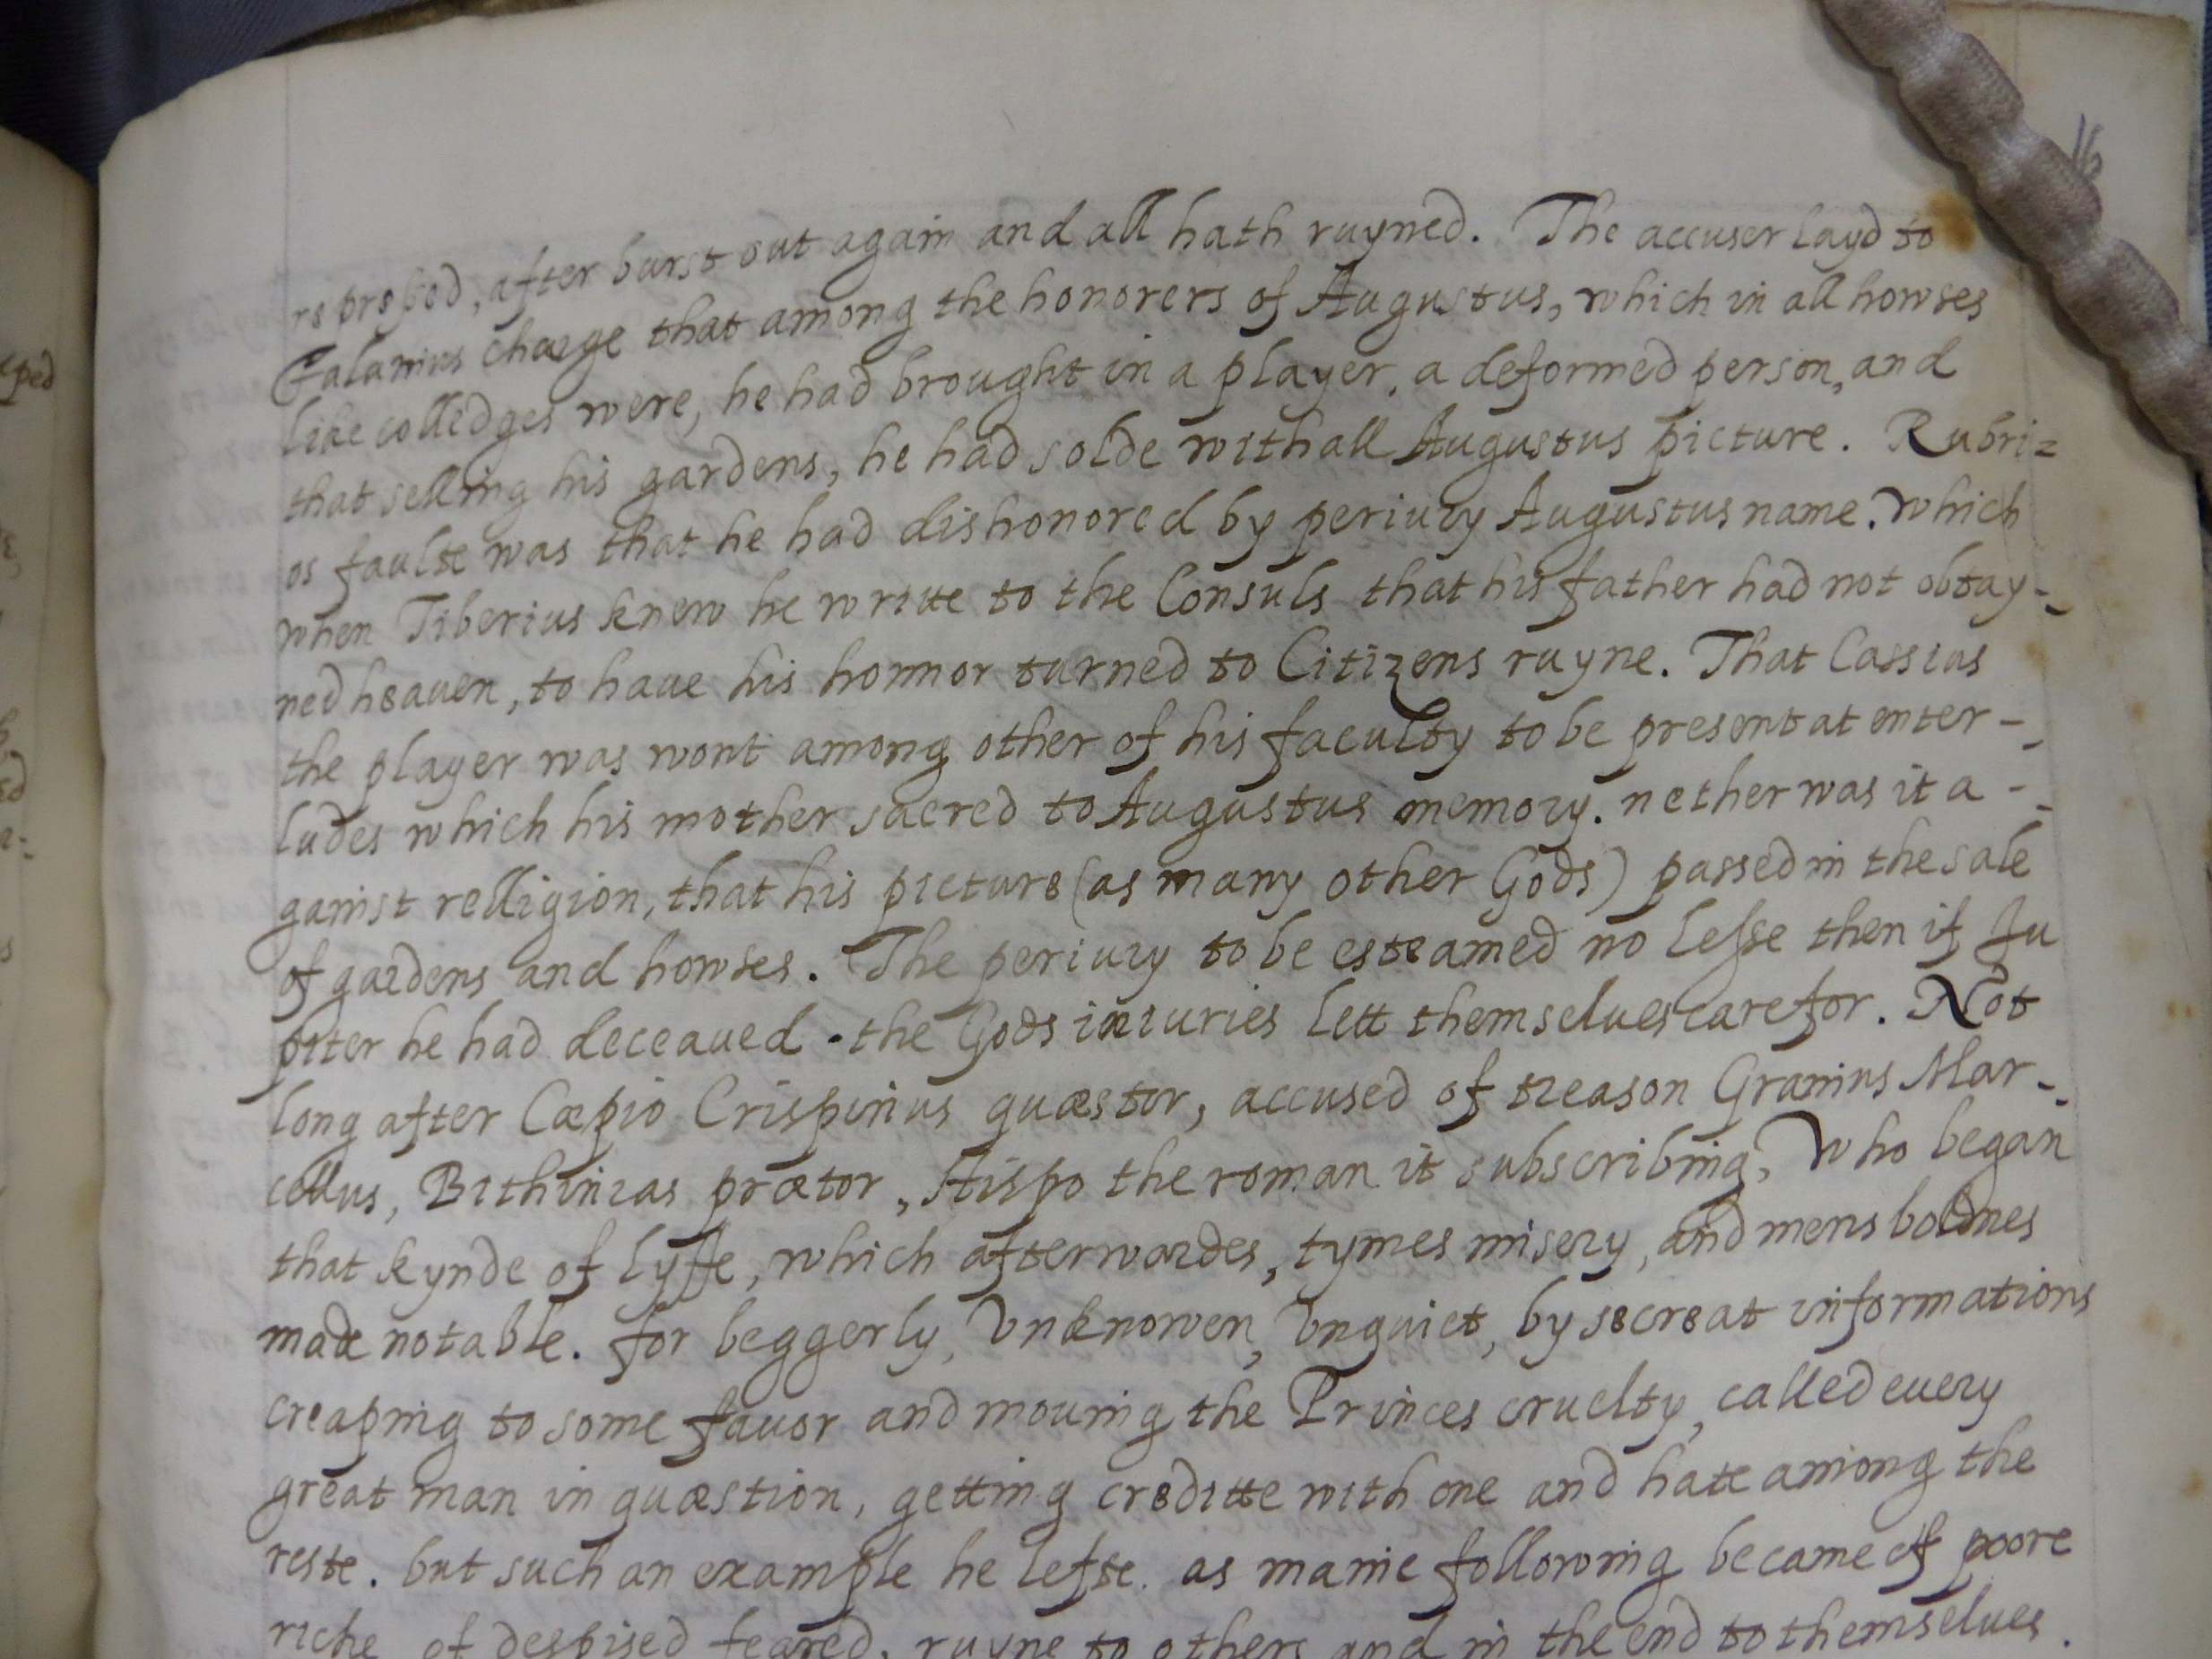 16
reprebed, after burst out again and all hath ruyned. The accuser layd to
Falanius charge that among the honorers of Augustus, which in all howses
like colledges were, he had brought in a player, a deformed person, and
that selling his gardens, he had solde withall Augustus picture. Rubri=
os faulte was that he had dishonored by periury Augustus name. Which
when Tiberius knew he writte to the Consuls that his father had not obtay-
ned heauen, to haue his honnor turned to Citizens ruyne. That Cassius
the player was wont among other of his faculty to be present at enter-
ludes which his mother sacred to Augustus memory. nether was it a-
gainst relligion, that his picture (as many other Gods) passed in the sale
of gardens and howses. The periury to be esteamed no lesse then if Ju
piter he had deceaued. the Gods iniuries lett themselues care for. Not
long after Cæpio Crispinus quæstor, accused of treason Granius Mar-
cellus, Bithinias prætor, Hispo the roman it subscribing, Who began
that kynde of lyffe, which afterwardes, tymes misery, and mens boldnes
made notable. for beggerly, Vnknowen, Vnquiet, by secreat informations
creaping to some fauor and mouing the Princes cruelty, called euery
great man in quæstion, getting creditte with one and hate among the
reste. but such an example he lefte. as manie following became of poore
riche of despised feared, ruyne to others and in the end to themselues.
ped